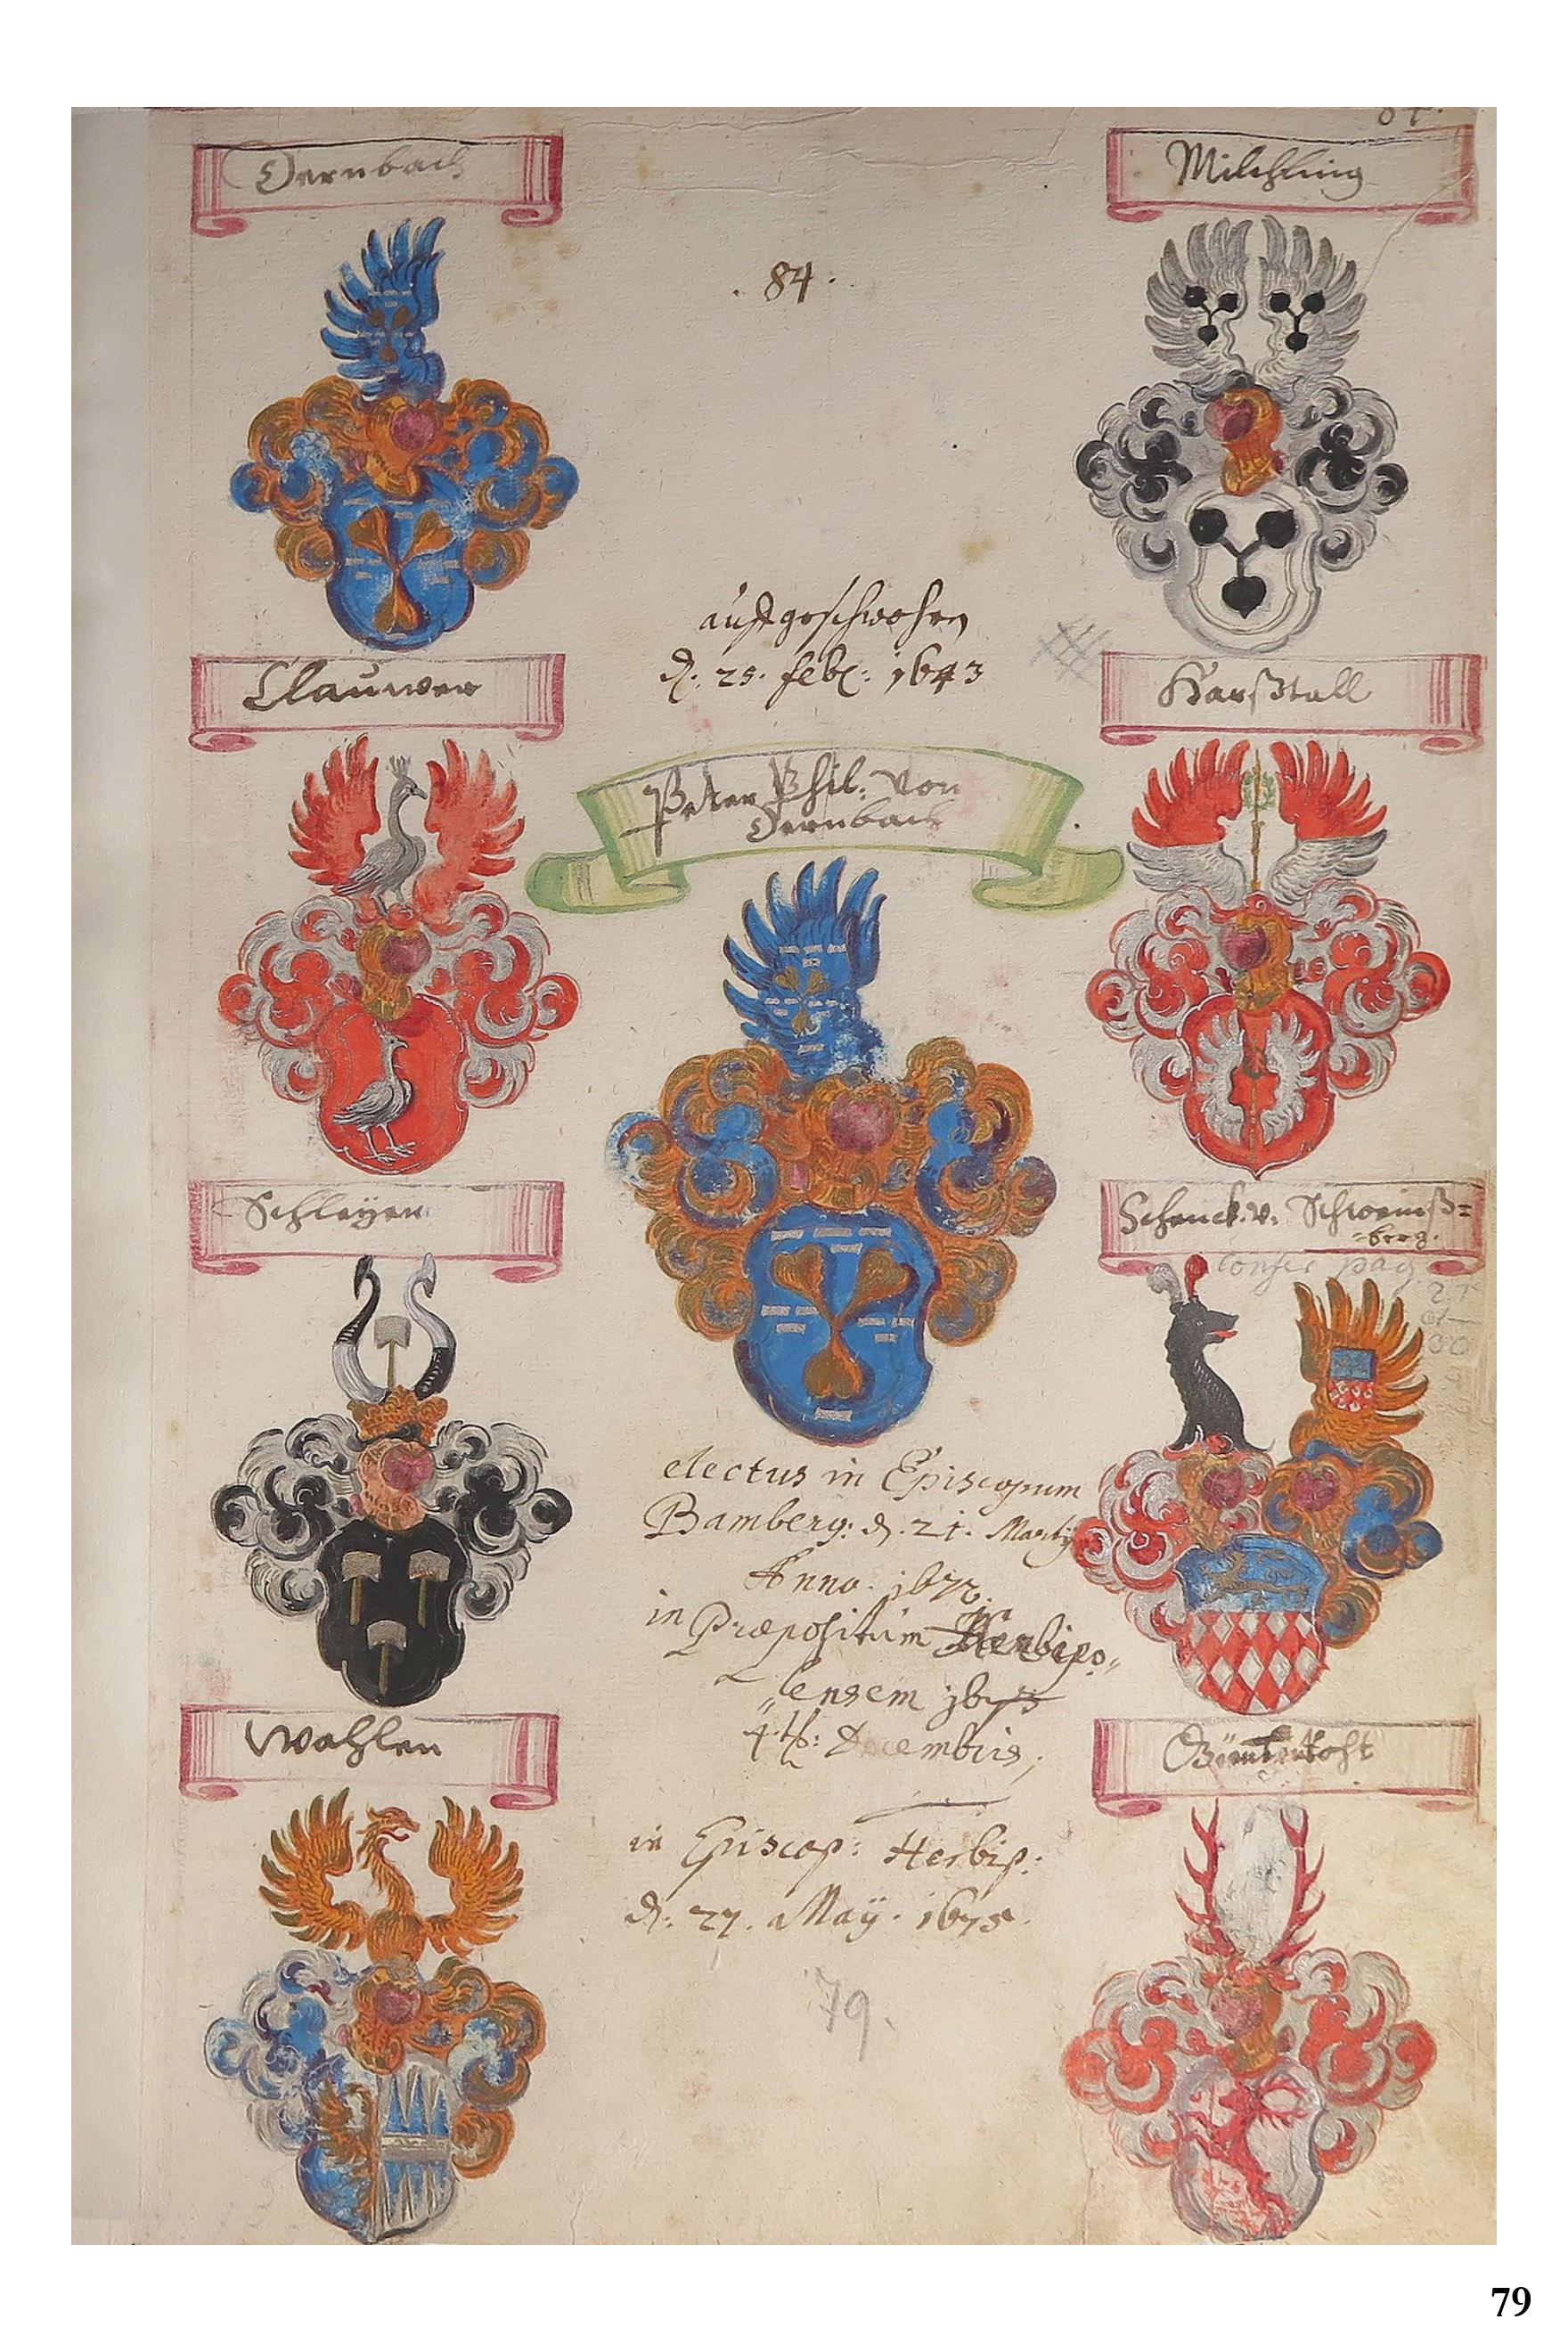 Dernbach
Milchling
. 84 .
auffgeschwohren
d. 25. feb: 1643
Clauwer
Harßtall
Peter Phil: von
Dernbach
Schleÿen
Schenck. v. Schweinß=
=berg.
confer pag
21
et
30
electus in Episcopum
Bamberg: d. 21. Martÿ
Anno. 1672.
in Præpositum Herbipo„
„lensem 1675
4. Xb: Decembris,
Wahlen
in Episcop: Herbip:
d: 27. Maÿ. 1675.
79.
79